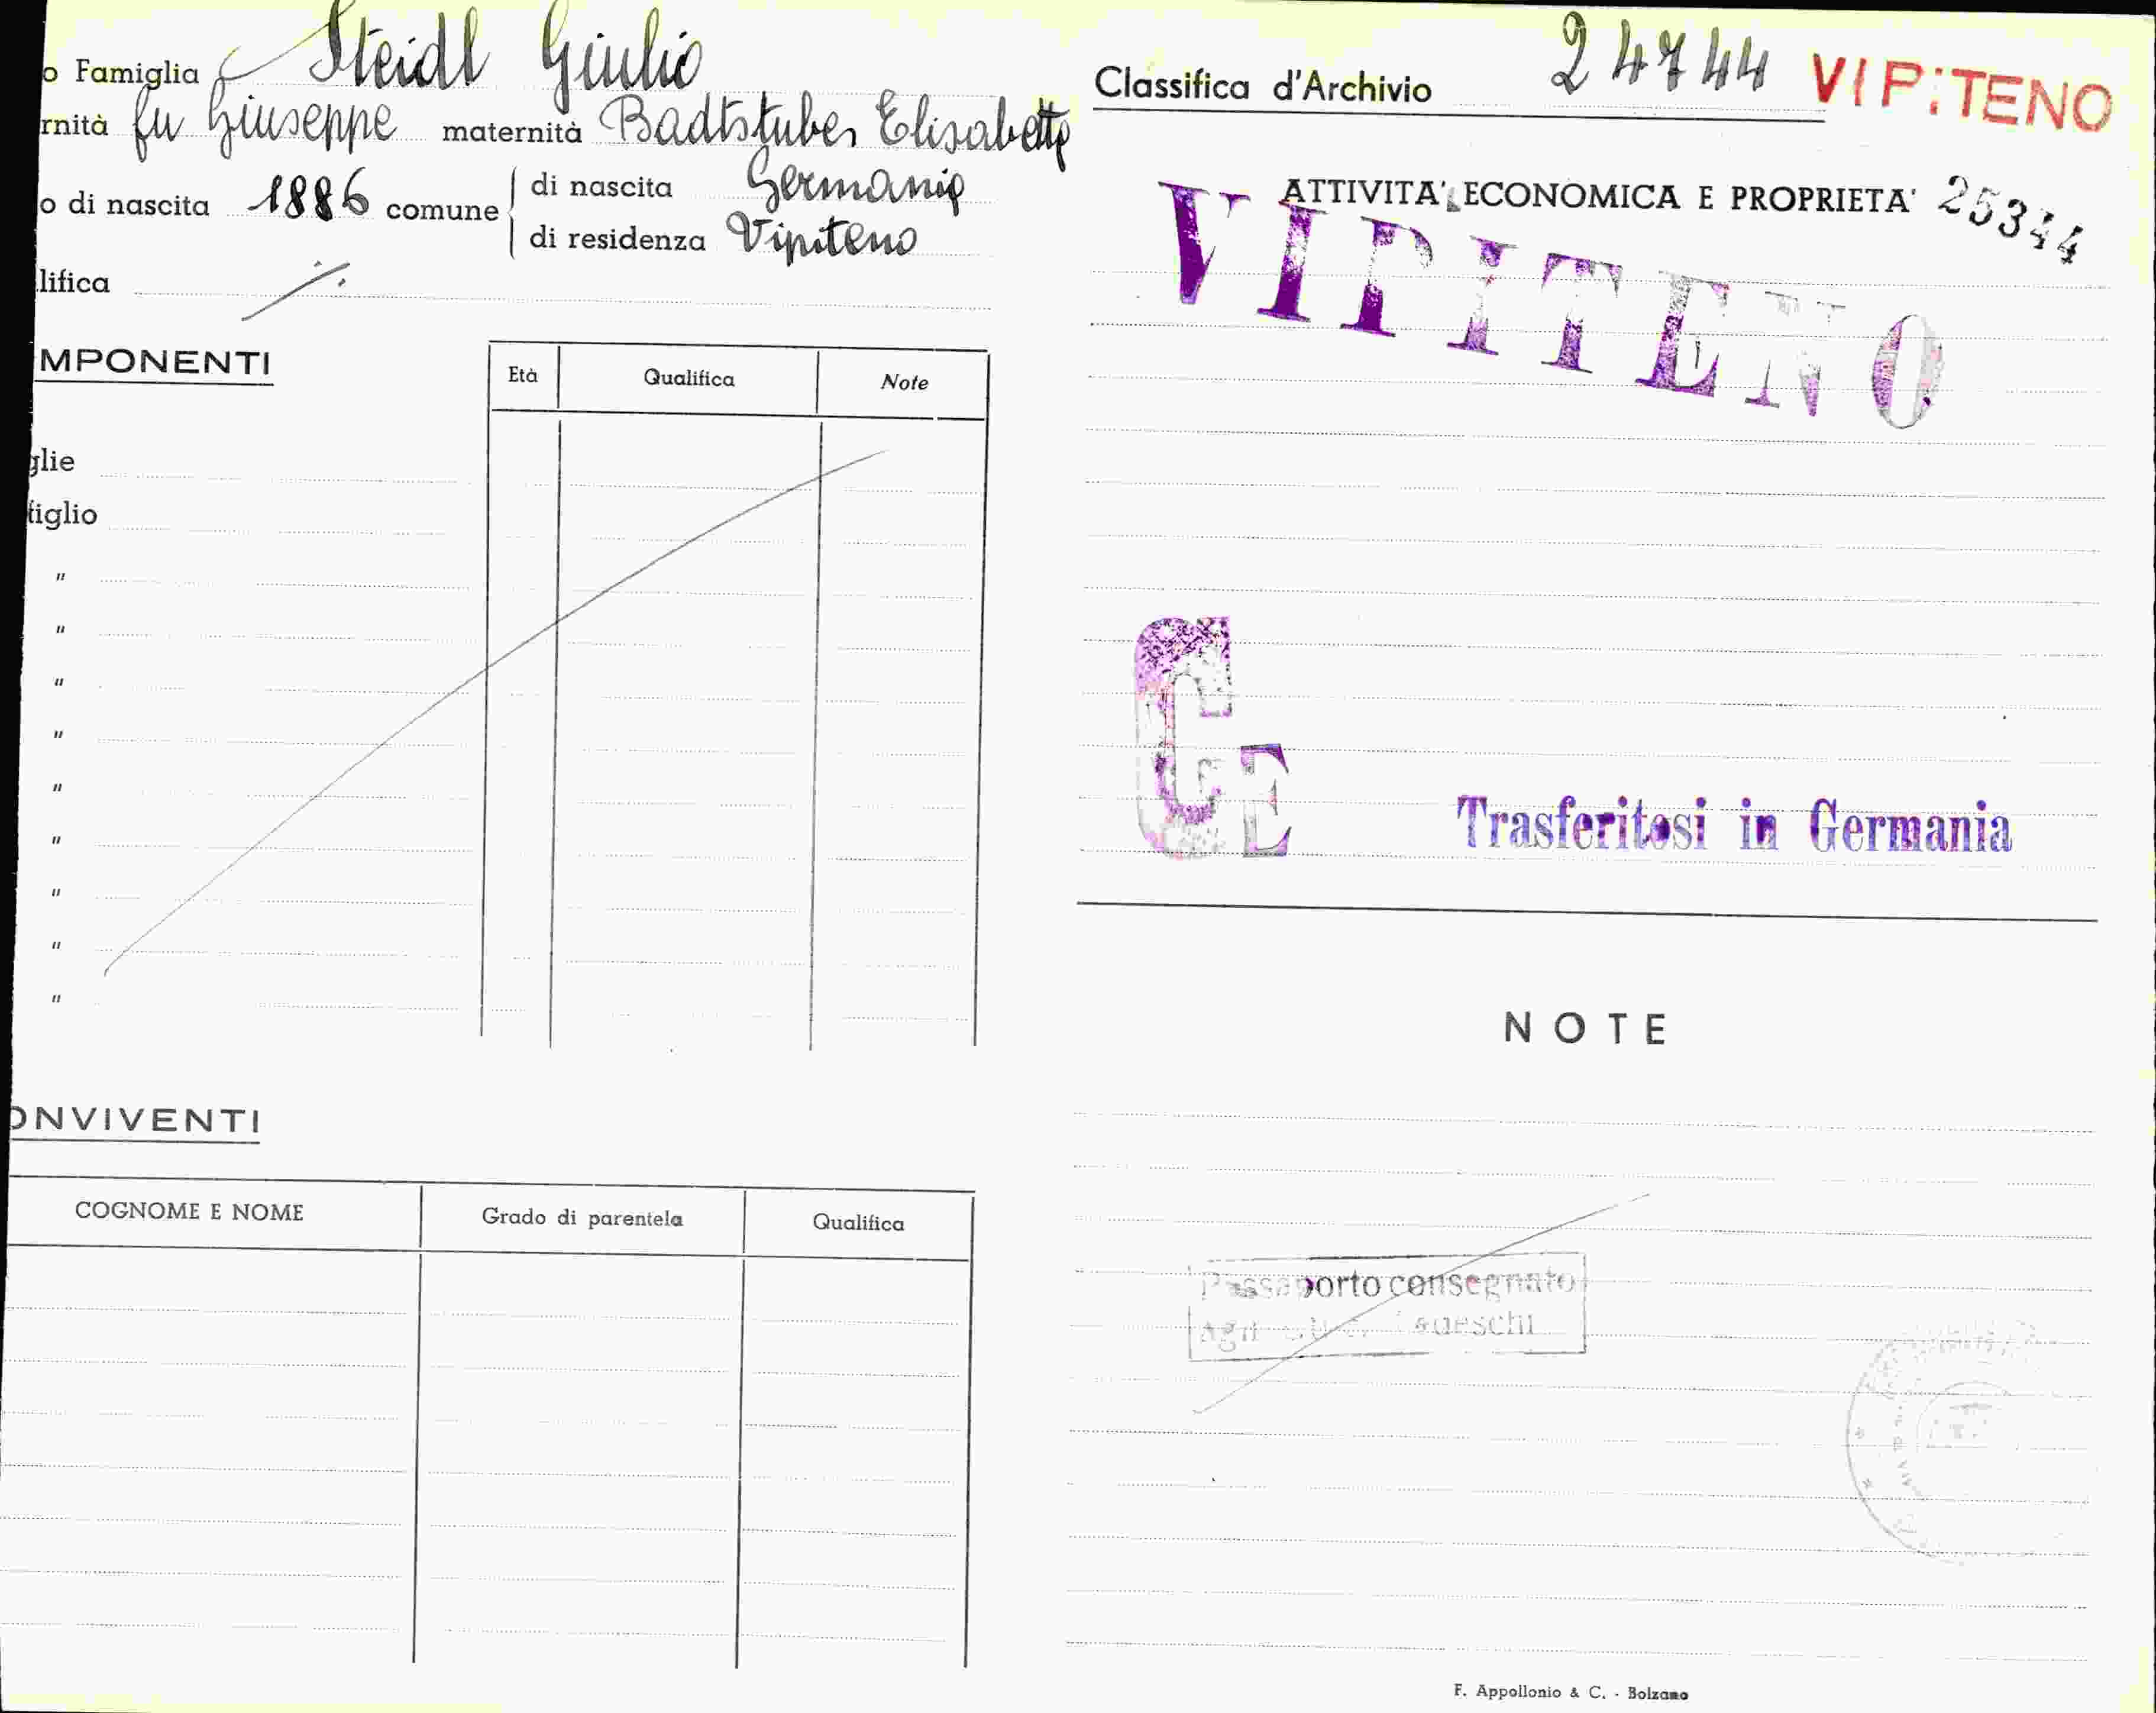 o Famiglia Steidl Giulio
rnità fu Giuseppe maternità Badtstuber Elisabetta
o di nascita 1886 comune di nascita Germania
di residenza Vipiteno
lifica
MPONENTI
Età Qualifica Note
glie
figlio
"
"
"
"
"
"
"
"
"
ONVIVENTI
COGNOME E NOME Grado di parentela Qualifica
Classifica d'Archivio 24744 VIPITENO
ATTIVITA' ECONOMICA E PROPRIETA' 25344
VIPITENO
G
E
Trasferitosi in Germania
NOTE
Passaporto consegnato
Tedeschi
F. Appollonio & C. - Bolzano